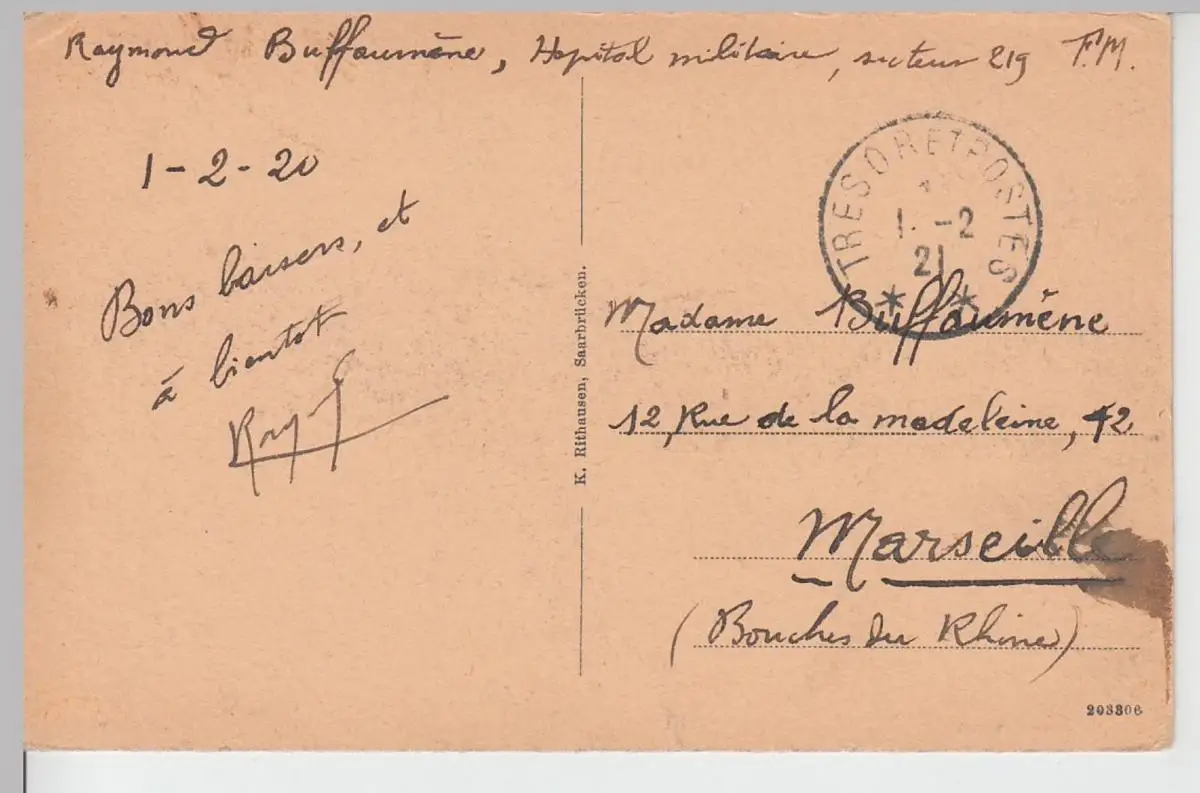 Raymond Buffaumène, Hopital militaire, secteur 219 F.M.
1-2-20
Bons baisers, et
à bientot
Ray
TRESOR ET POSTES
1 -2
21
* *
K. Rithausen, Saarbrücken.
Madame Buffaumène
12, Rue de la madeleine, 42
Marseille
(Bouches du Rhône)
203306